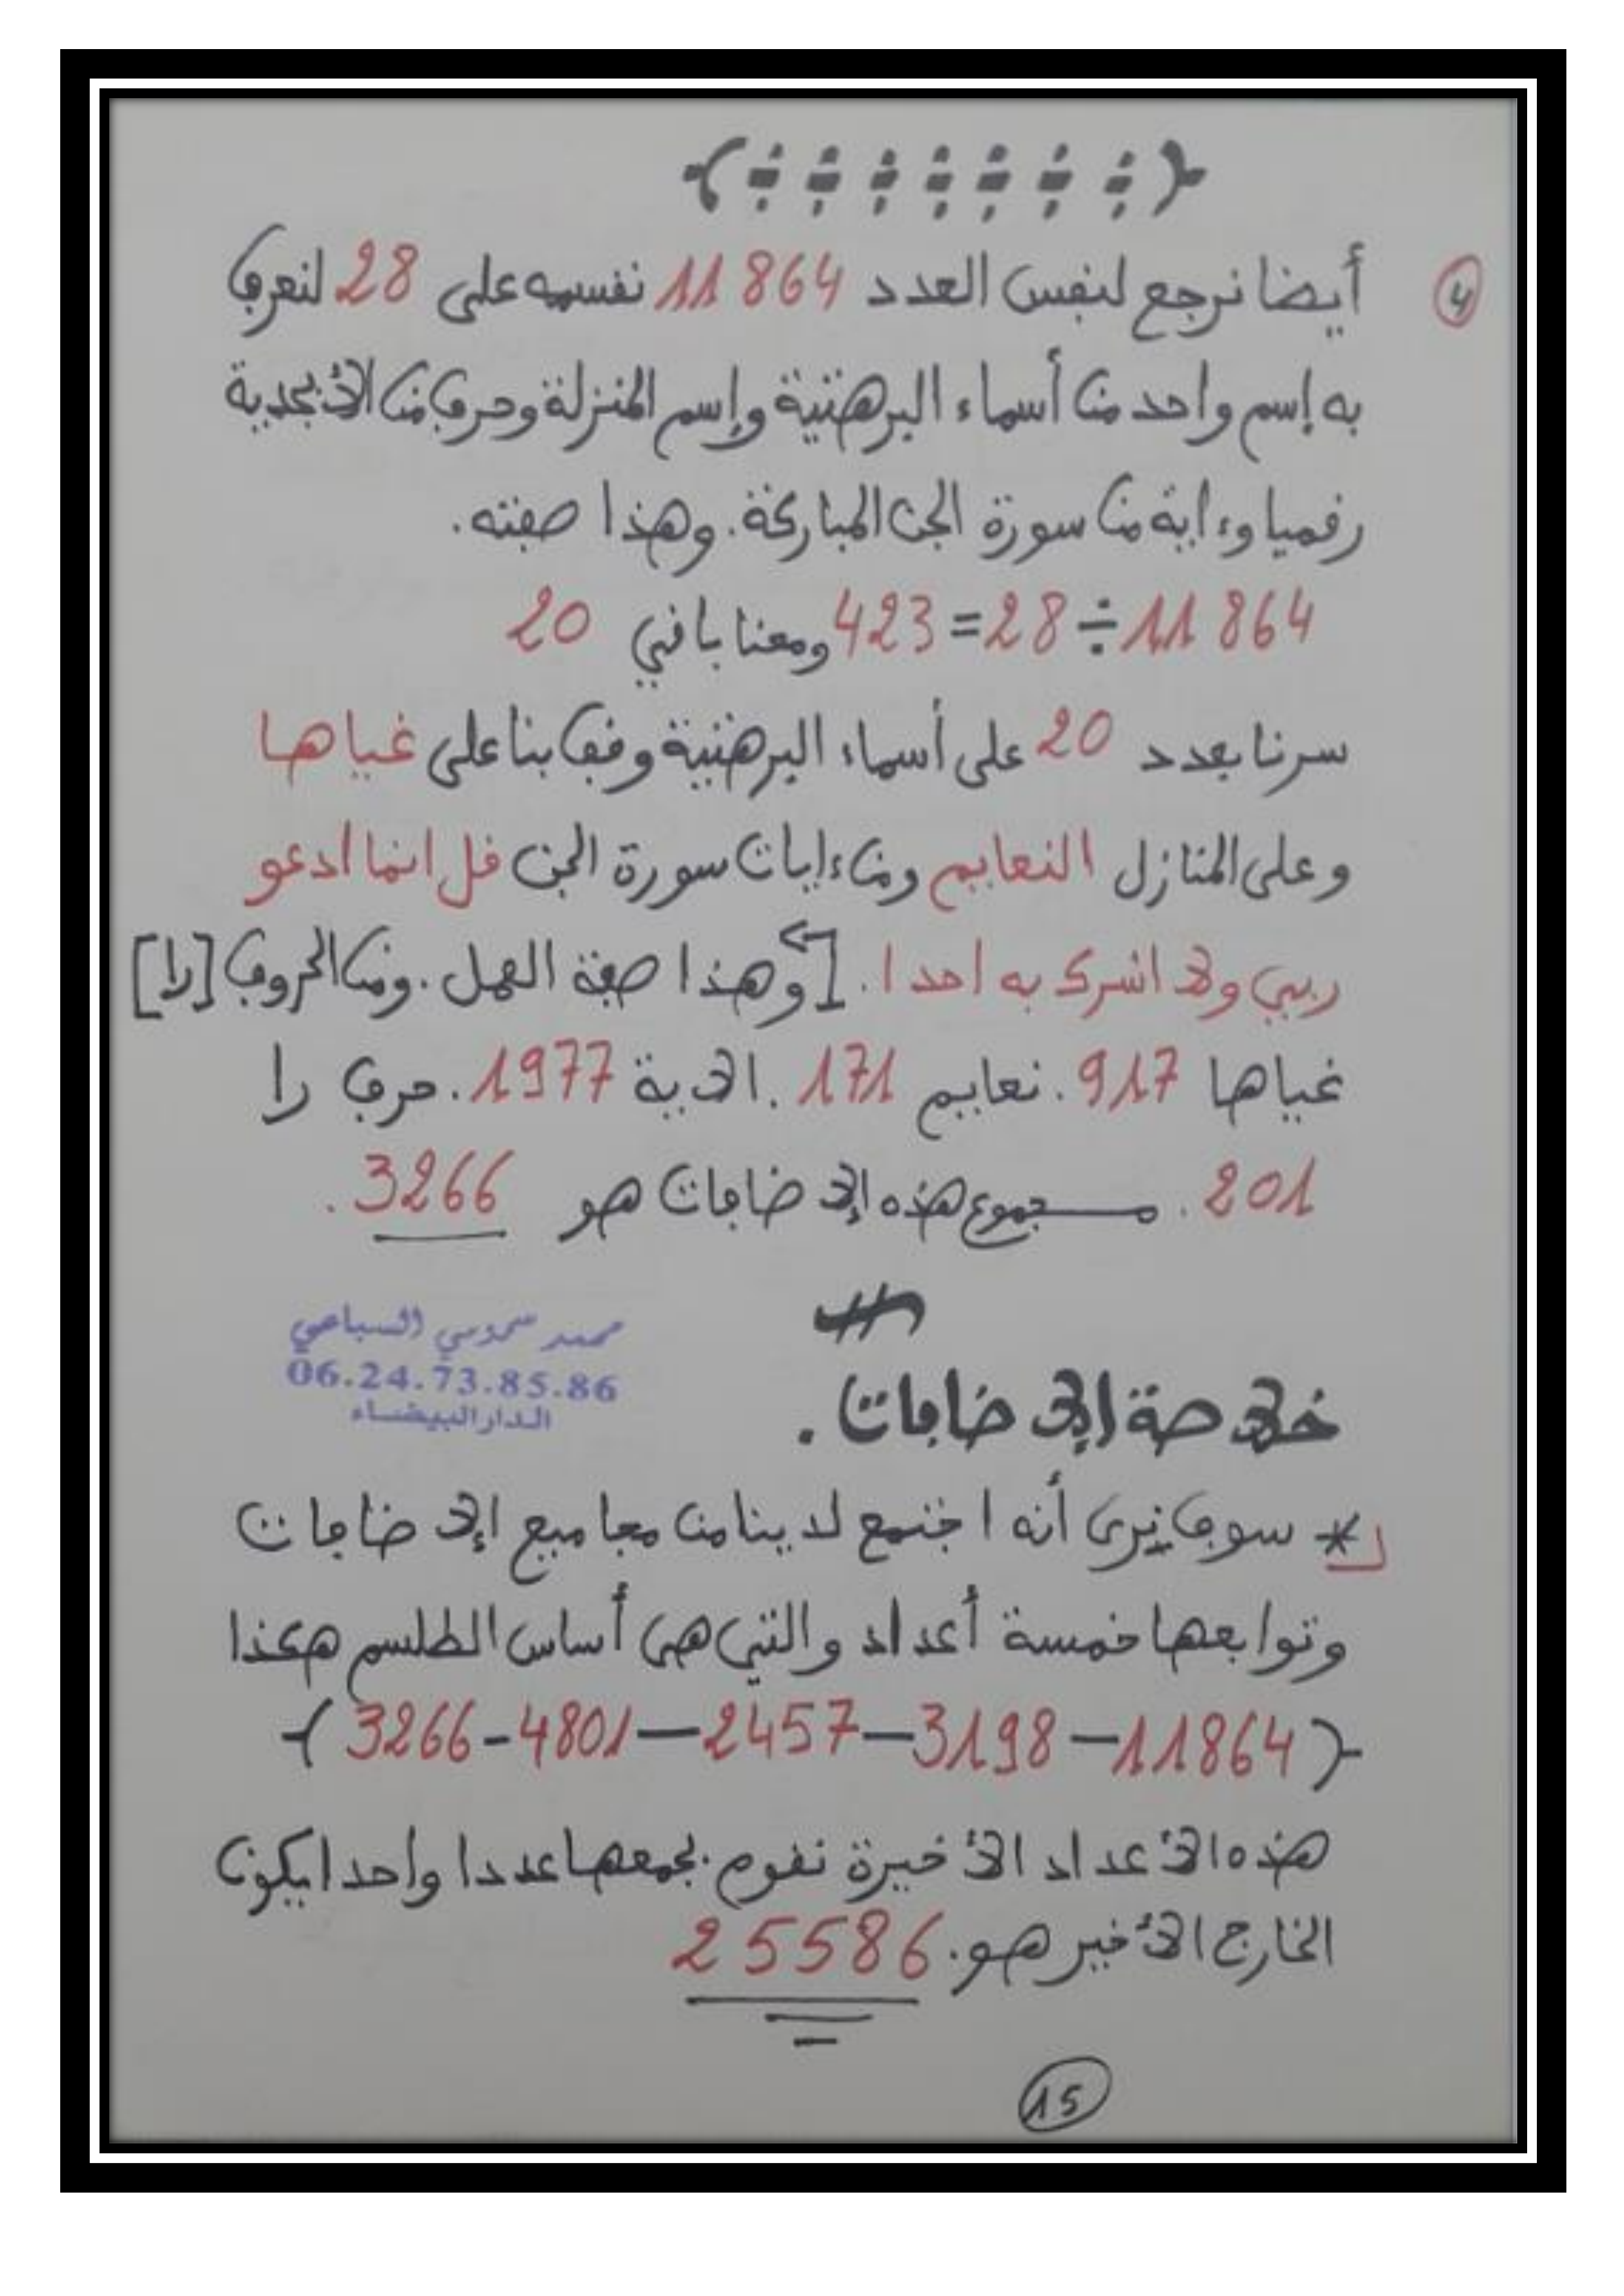 ④ أيضا نرجع لنفس العدد 11864 نفسمه على 28 لنعرف
به إسم واحد من أسماء البرهتية وإسم المنزلة وحرف من الأبجدية
رقميا وءاية من سورة الجن المباركة. وهذا صفته.
11864 ÷ 28 = 423 ومعنا باقي 20
سرنا بعدد 20 على أسماء البرهتية وقفنا على غياها
وعلى المنازل النعايم ومن ءايات سورة الجن قل انما ادعو
ربي ولا اشرك به احدا. [وهذا صفة العمل. ومن الحروف [را]
غياها 917. نعايم 171. الاية 1977. حرف را
201. مجموع هذه الإضافات هو 3266.
محمد سموسي السباعي
06.24.73.85.86
الدار البيضاء
خلاصة الإضافات.
* سوف نرى أنه اجتمع لدينا من مجاميع الإضافات
وتوابعها خمسة أعداد والتي هي أساس الطلسم هكذا
(11864 – 3198 – 2457 – 4801 - 3266)
هذه الأعداد الأخيرة نقوم بجمعها عددا واحدا يكون
الخارج الأخير هو. 25586
15